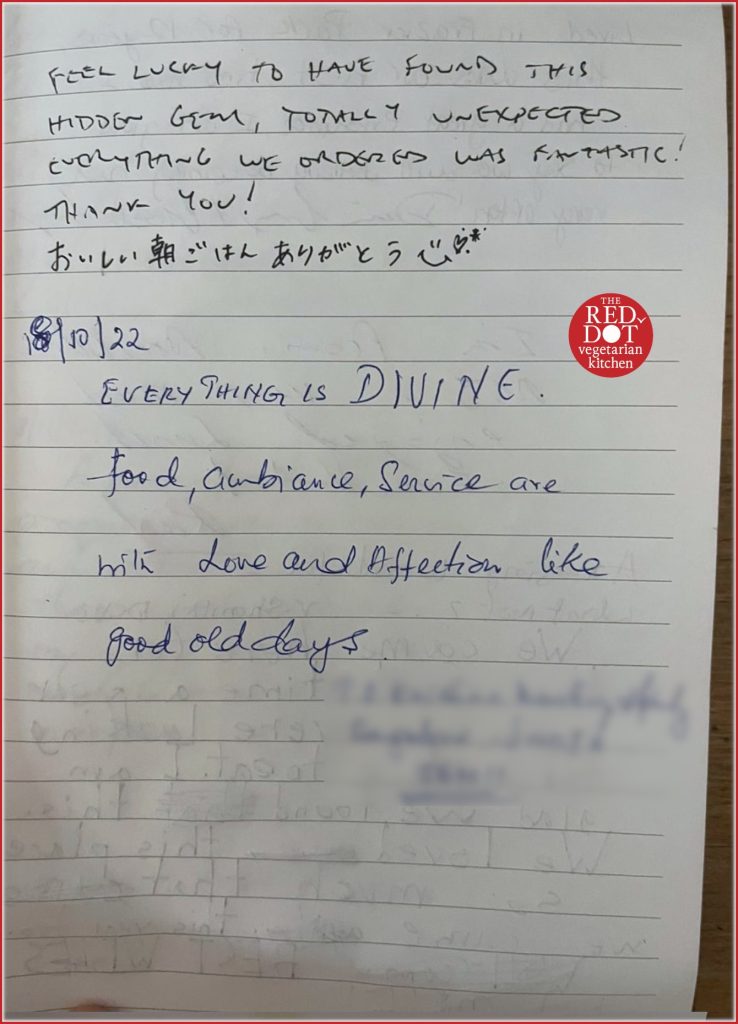 FEEL LUCKY TO HAVE FOUND THIS
HIDDEN GEM, TOTALLY UNEXPECTED
EVERYTHING WE ORDERED WAS FANTASTIC!
THANK YOU!
おいしい朝ごはんありがとう
/10/22
THE
RED
DOT
vegetarian
kitchen
EVERYTHING IS DIVINE.
food, ambiance, Service are
with Love and Affection like
good old days.